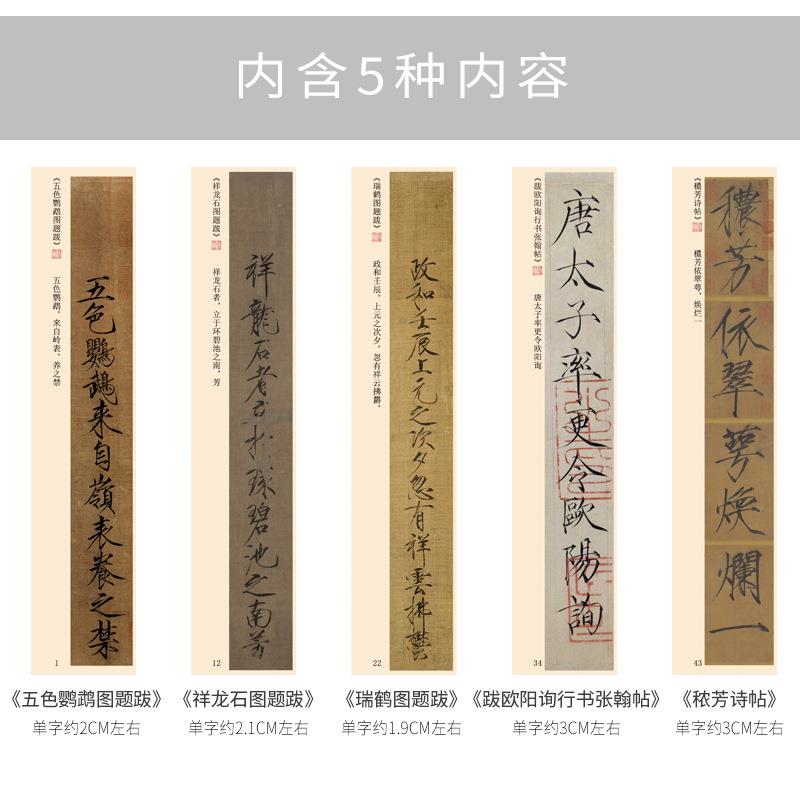 内含5种内容
《五色鹦鹉图题跋》
五色鹦鹉，来自岭表，养之禁
五色鸚鵡来自嶺表養之禁
1
《祥龙石图题跋》
祥龙石者，立于环碧池之南，芳
祥龍石者立於環碧池之南芳
12
《瑞鹤图题跋》
政和壬辰，上元之次夕，忽有祥云拂爵，
政和壬辰上元之次夕忽有祥雲拂鬱
22
《跋欧阳询行书张翰帖》
唐太子率更令欧阳询
唐太子率更令歐陽詢
34
《穠芳诗帖》
穠芳依翠萼，焕烂一
穠芳依翠萼煥爛一
43
《五色鹦鹉图题跋》
单字约2CM左右
《祥龙石图题跋》
单字约2.1CM左右
《瑞鹤图题跋》
单字约1.9CM左右
《跋欧阳询行书张翰帖》
单字约3CM左右
《秾芳诗帖》
单字约3CM左右